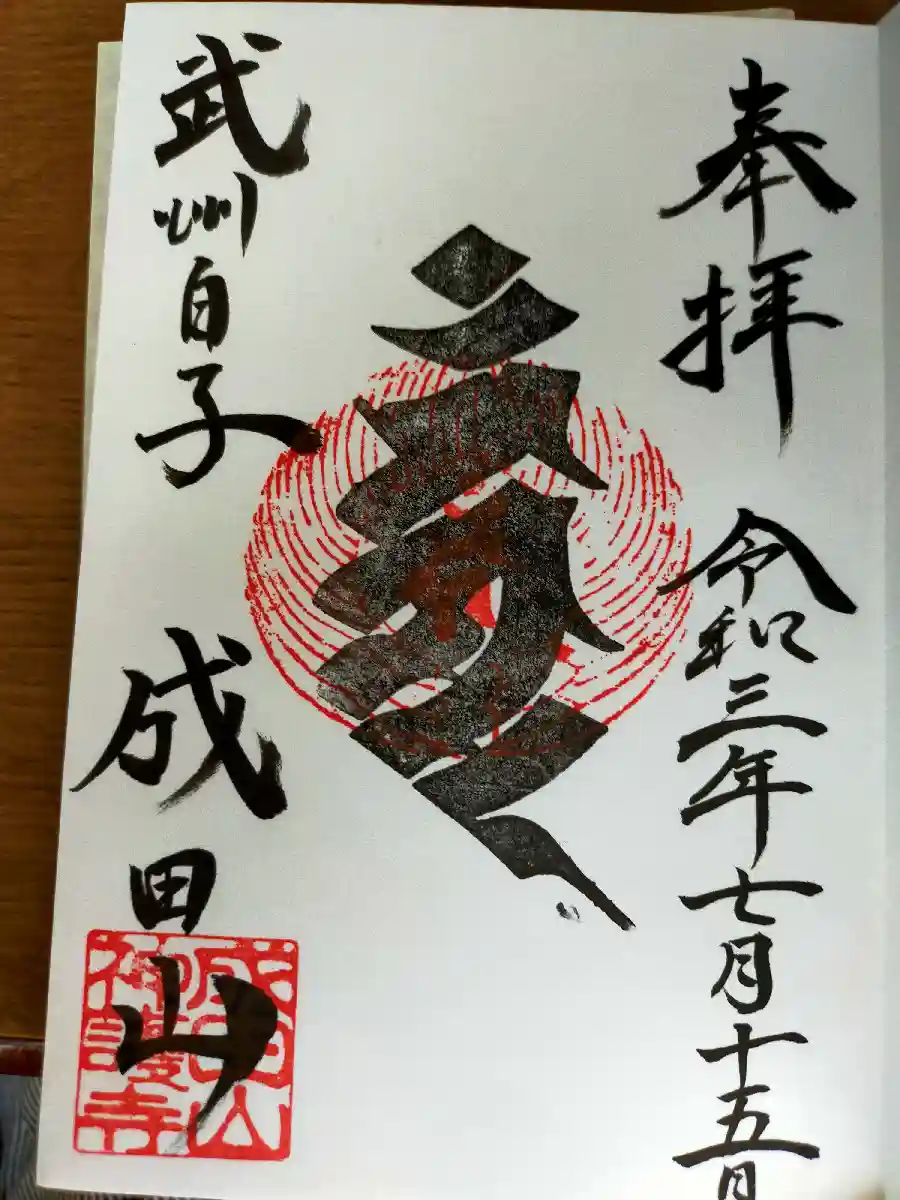 奉拝
令和三年七月十五日
武州白子
成田山
成田山
神護寺